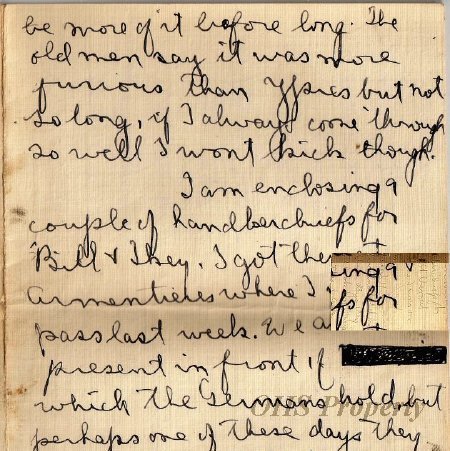 be more of it before long. The
old men say it was more
furious than Ypres but not
so long, if I always come through
so well I wont kick though.
I am enclosing a
couple of handkerchiefs for
Bill & Ikey. I got them
ing a
Armentieres where I
fs for
pass last week. We a
present in front of
which the Germans hold, but
OHS Property
perhaps one of these days they